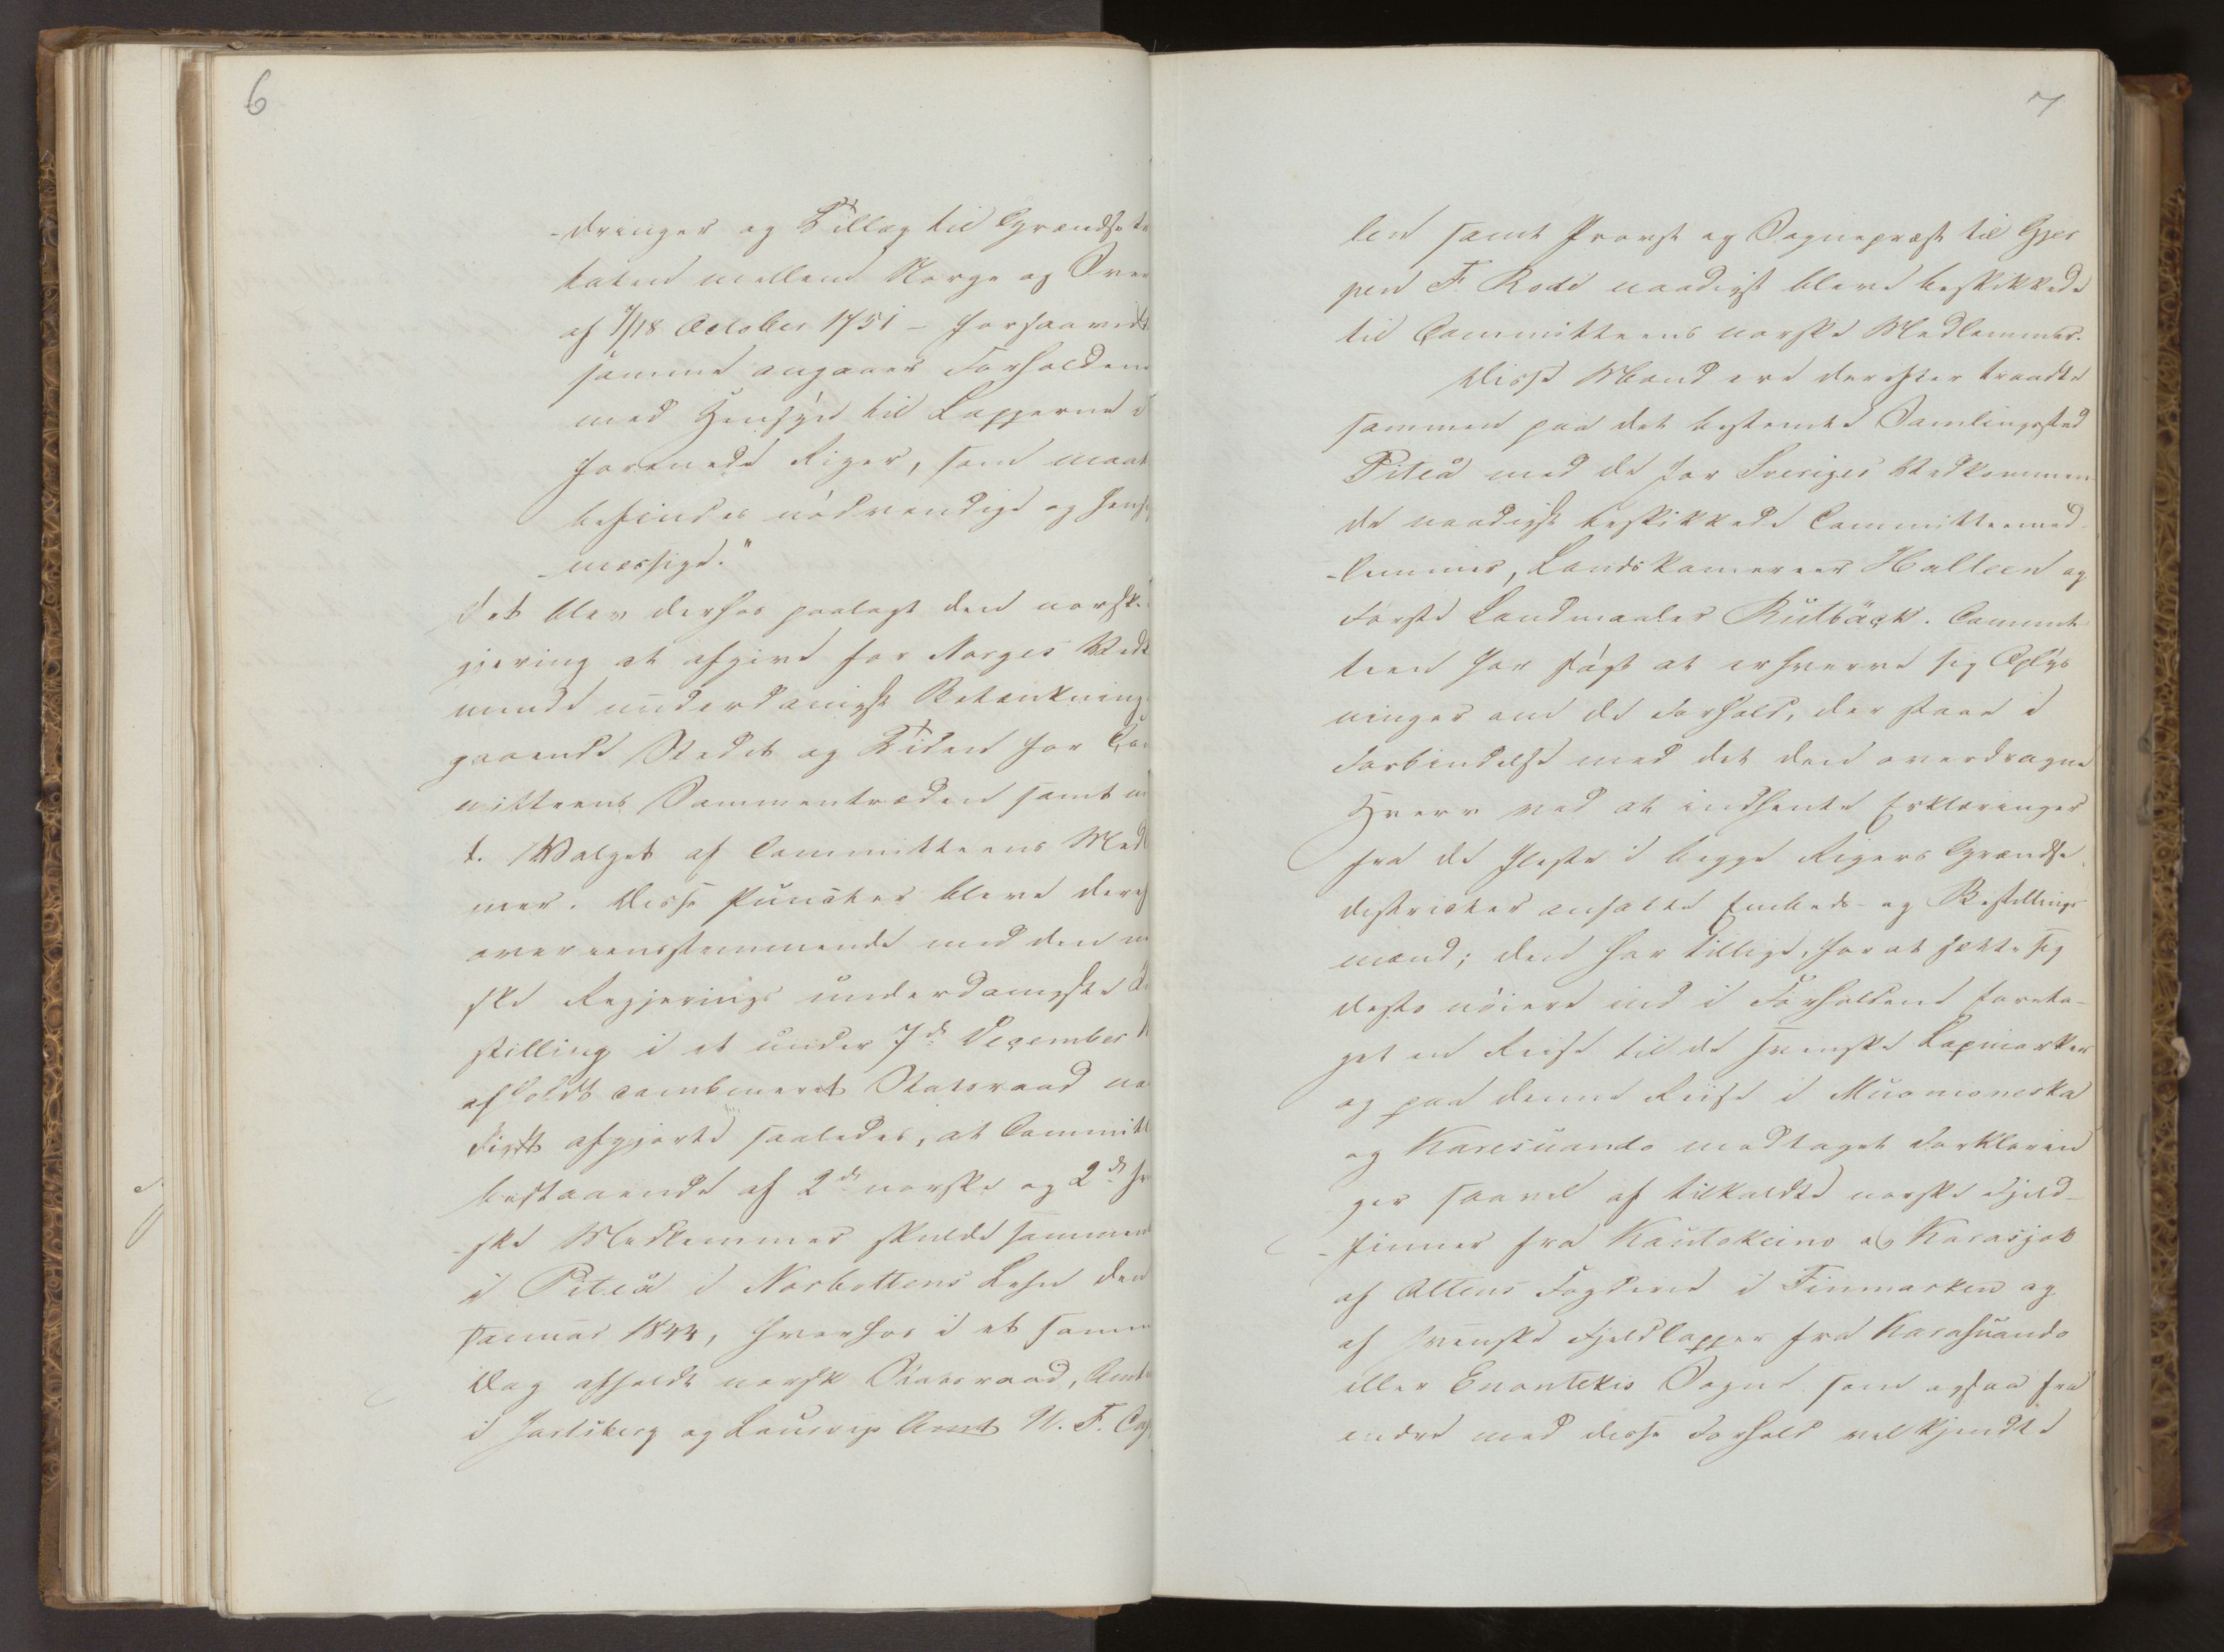 6
-dringer og Tillæg til Grændsetr
taten mellem Norge og Sver
af 7/18 October 1751 – forsaavidt
samme angaaer Forholdene
med Hensyn til Lapperne i
forenede Riger, som maat
befindes nödvendige og hens
-mæssige."
Det blev derhos paalagt den norske
gjering at afgive for Norges Vedk
mende underdanigst Betænkning
gaaende Stedet og Tiden for Co
mitteens Sammentræden samt m
t. Valget af Committeens Med
mer. Disse Puncter bleve deref
overeensstemmende med den no
ske Regjerings underdanigste
stilling i et under 7de December
afholdt combineret Statsraad na
digst afgjorte saaledes, at Committ
bestaaende af 2de norske og 2de sv
-ske Medlemmer skulde sammen
i Piteå i Norbottens Lehn den
Januar 1844, hvorhos i et samme
Dag afholdt norsk Statsraad, Amt
i Jarlsberg og Laurvigs Amt U. F. Ca
7
len samt Provst og Sognepræst til Gjer
pen F. Rode naadigst bleve beskikkede
til Committeens norske Medlemmer.
Disse Mænd ere derefter traadte
sammen paa det bestemte Samlingssted
Piteå med de for Sveriges Vedkommen
de naadigst beskikkede Committeemed-
-lemmer, Landskamereer Halleen og
Förste Landmaaler Kulbäck. Commit
teen har sögt at erhverve sig Oplys
ninger om de Forhold, der staae i
Forbindelse med det den overdragne
Hverv ved at indhente Erklæringer
fra de fleste i begge Rigers Grændse
districter ansatte Embeds- og Bestillings
mænd; den har tillige, for at sætte sig
desto nöiere ind i Forholdene foreta-
get en Reise til de svenske Lapmarker
og paa denne Reise i Muonioneska
og Karesuando modtaget Forklarin
ger saavel af tilkaldte norske Fjeld-
-finner fra Kautokeino og Karasjok
af Altens Fogderie i Finmarken og
af svenske Fjeldlapper fra Karasuando
eller Enontekis Sogne som ogsaa fra
andre med disse Forhold velkjendte